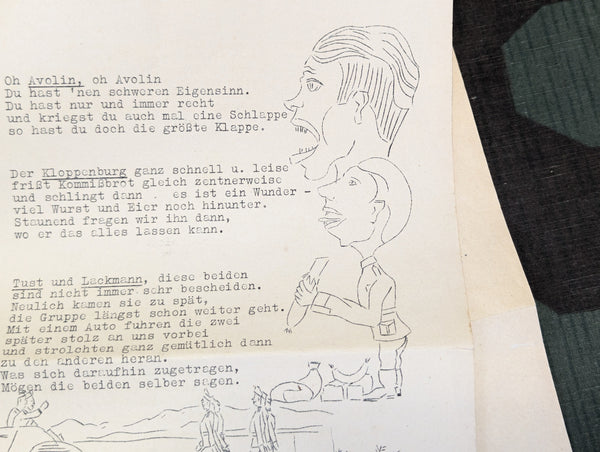 Oh Avolin, oh Avolin
Du hast 'nen schweren Eigensinn.
Du hast nur und immer recht
und kriegst du auch mal eine Schlappe
so hast du doch die größte Klappe.
Der Kloppenburg ganz schnell u. leise
frißt Kommißbrot gleich zentnerweise
und schlingt dann . es ist ein Wunder -
viel Wurst und Eier noch hinunter.
Staunend fragen wir ihn dann,
wo er das alles lassen kann.
Tust und Lackmann, diese beiden
sind nicht immer sehr bescheiden.
Neulich kamen sie zu spät,
die Gruppe längst schon weiter geht.
Mit einem Auto fuhren die zwei
später stolz an uns vorbei
und strolchten ganz gemütlich dann
zu den anderen heran.
Was sich daraufhin zugetragen,
Mögen die beiden selber sagen.